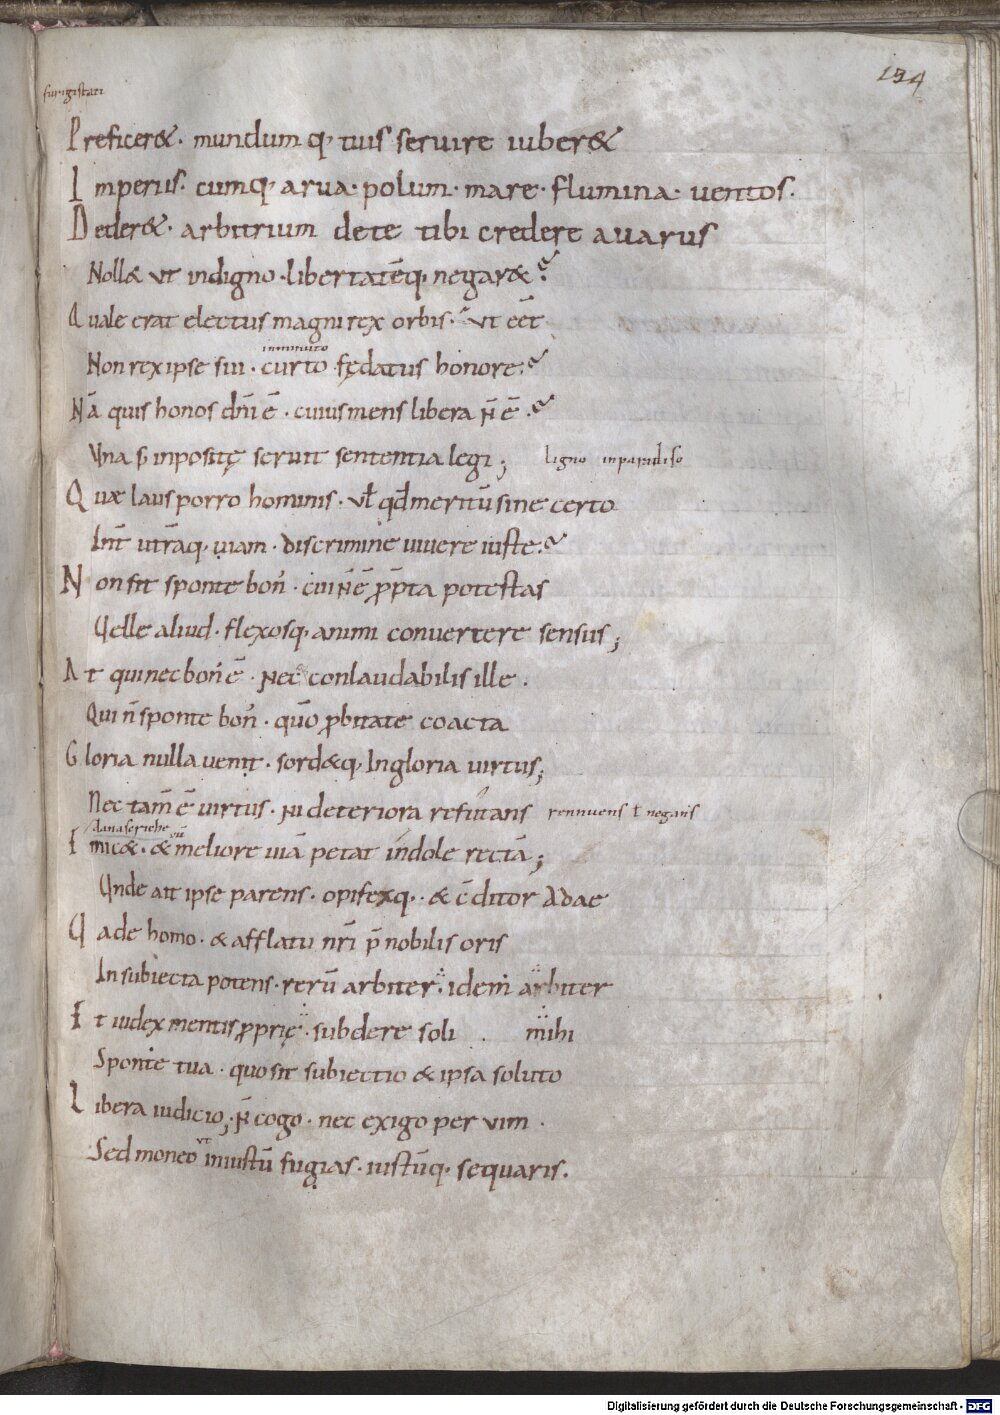 134
furigistati
Preficer&. mundum q; tuis seruire iuber&
Imperiis. cumq; arua. polum. mare. flumina. uentos.
Deder&. arbitrium dete tibi credere auarus
Noll& ut indigno. libertatēq; negar&?
Quale erat electus magni rex orbis. ut eēt
imminuto
Non rex ipse sui. curto fędatus honore?
Nā quis honos dn̄i ē. cuius mens libera n̄ ē.?
Vna s; inpositę seruit sententia legi; ligno inparadiso
Quæ laus porro hominis. ut̄ qd̄ meritū sine certo
Int̄ utrāq; uiam. discrimine uiuere iuste?
Non fit sponte bon̄. cui n̄ ē prōpta potestas
Velle aliud. flexosq; animi conuertere sensus;
At qui nec bon̄ ē. nec conlaudabilis ille.
Qui n̄ sponte bon̄. quō probitate coacta
Gloria nulla uenit. sord&q; Ingloria uirtus;
Nec tam̄ ē uirtus. ni deteriora refutans rennuens ł negans
danaseriche
Emic&. & meliore uiā petat indole rectā;
Vnde ait ipse parens. opifexq;. & c̄ditor Adae
Vade homo. & afflatu nr̄i p̄nobilis oris
Insubiecta potens. rerū arbiter. idem arbiter
Et iudex mentis proprię. subdere soli . mihi
Sponte tua. quo sit subiectio & ipsa soluto
Libera iudicio; n̄ cogo. nec exigo per uim.
ut
Sed moneo iniustū fugias. iustūq; sequaris.
Digitalisierung gefördert durch die Deutsche Forschungsgemeinschaft - DFG